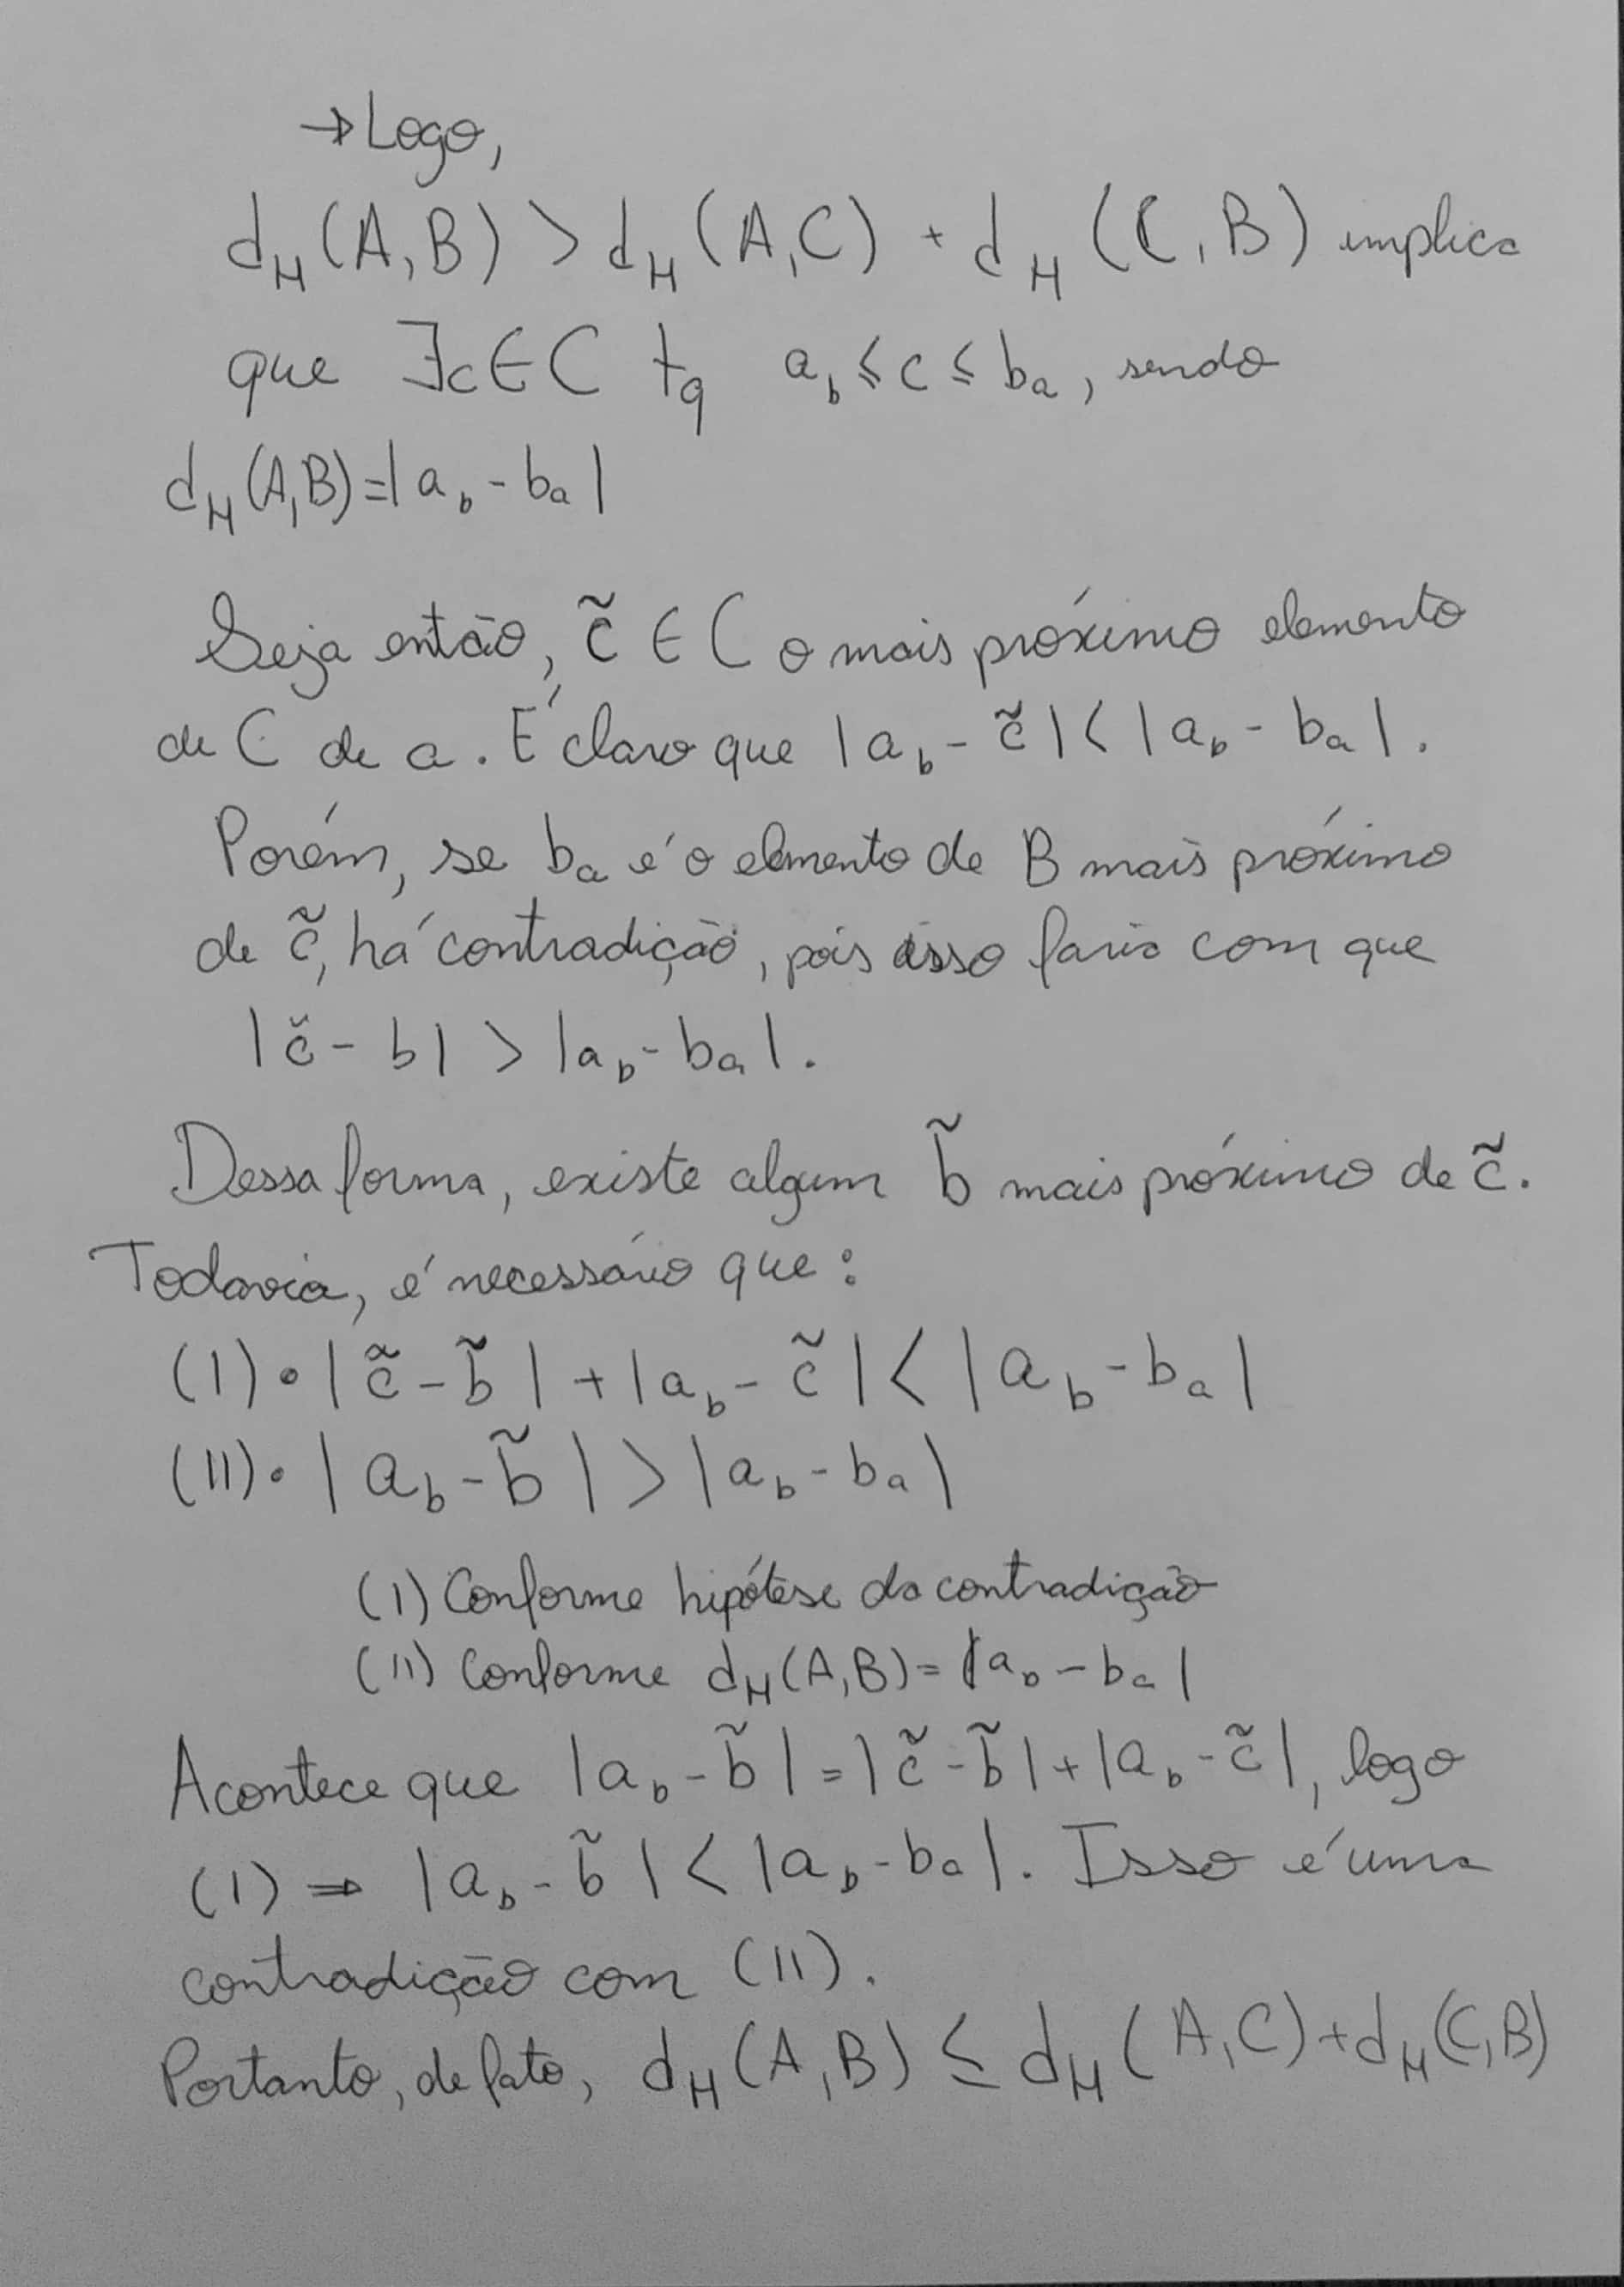 → Logo,
d_H(A,B) > d_H(A,C) + d_H(C,B) implica
que ∃c∈C tq a_b ≤ c ≤ b_a, sendo
d_H(A,B)=|a_b - b_a|
Seja então, c̃ ∈ C o mais próximo elemento
de C de a. É claro que |a_b - c̃| < |a_b - b_a|.
Porém, se b_a é o elemento de B mais próximo
de c̃, há contradição, pois isso faria com que
|c̃ - b| > |a_b - b_a|.
Dessa forma, existe algum b̃ mais próximo de c̃.
Todavia, é necessário que:
(I)• |c̃ - b̃| + |a_b - c̃| < |a_b - b_a|
(II)• |a_b - b̃| > |a_b - b_a|
(I) Conforme hipótese da contradição
(II) Conforme d_H(A,B) = |a_b - b_a|
Acontece que |a_b - b̃| = |c̃ - b̃| + |a_b - c̃|, logo
(I) ⇒ |a_b - b̃| < |a_b - b_a|. Isso é uma
contradição com (II).
Portanto, de fato, d_H(A,B) ≤ d_H(A,C) + d_H(C,B)